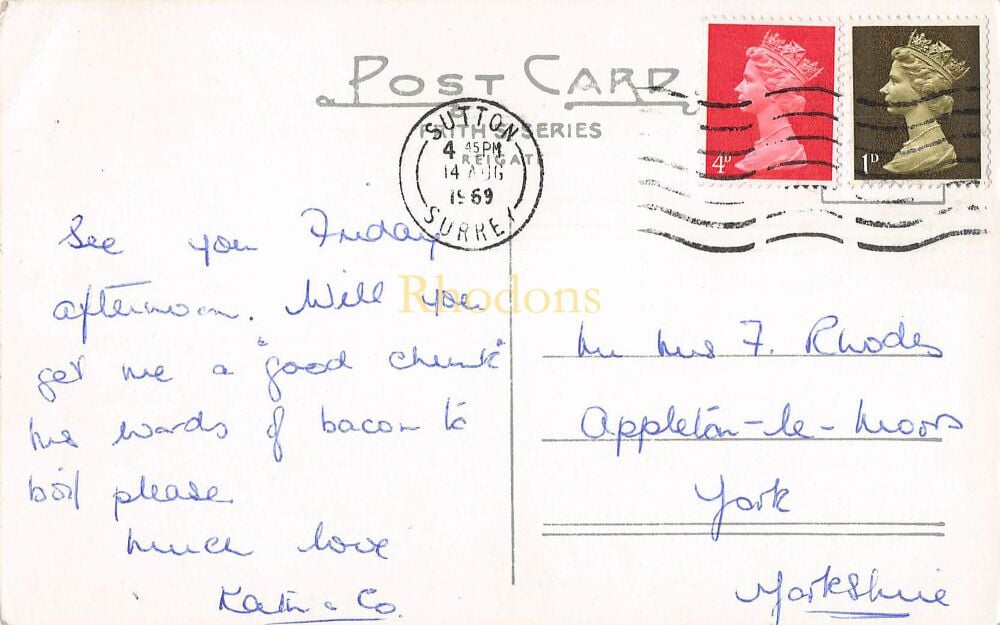 POST CARD
FRITH SERIES
REIGATE
SUTTON
4 45PM
14 AUG
1969
SURREY
4D
1D
Rhodons
See you Friday
afternoon. Will you
get me a "good chunk"
his words of bacon to
boil please
Much love
& Co.
Mr Mrs F. Rhodes
Appleton-le-Moors
York
Yorkshire